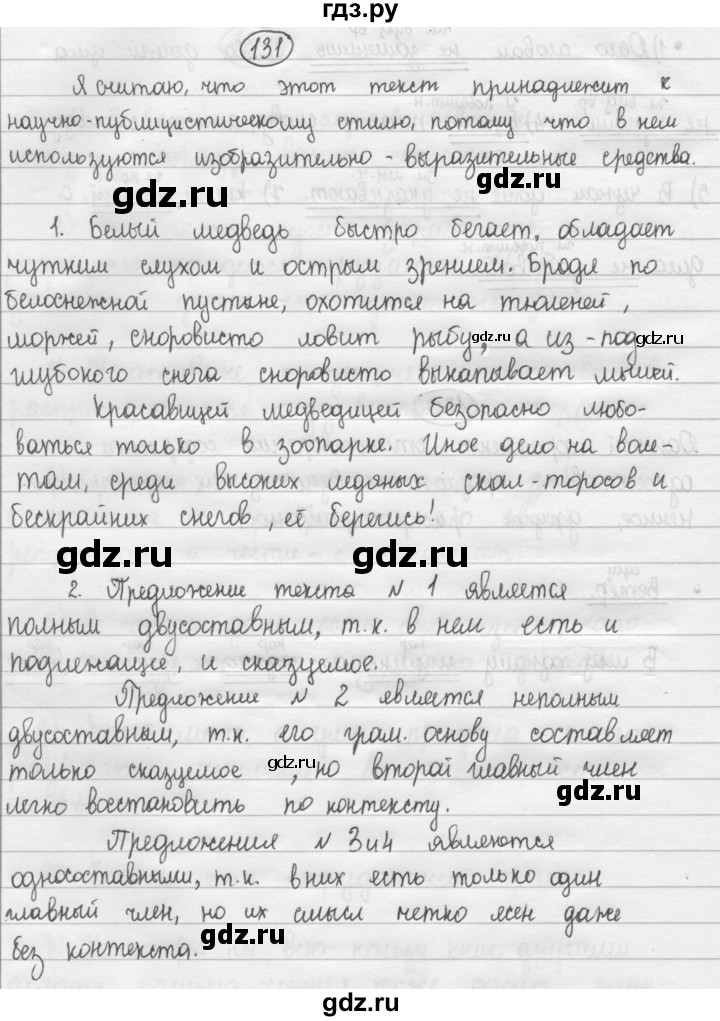 гдз.ру
131
Я считаю, что этот текст принадлежит к
научно-публицистическому стилю, потому что в нем
используются изобразительно-выразительные средства.
gdz.ru
gdz.ru
1. Белый медведь быстро бегает, обладает
чутким слухом и острым зрением. Бродя по
белоснежной пустыне, охотится на тюленей,
моржей, сноровисто ловит рыбу, а из-под
gdz.ru
gdz.ru
глубокого снега сноровисто выкапывает мышей.
Красавицей медведицей безопасно любо-
ваться только в зоопарке. Иное дело на воле-
там, среди высоких ледяных скал-торосов и
бескрайних снегов, её берегись!
gdz.ru
gdz.ru
2. Предложение текста N 1 является
полным двусоставным, т.к. в нем есть и
подлежащие, и сказуемое.
Предложение N 2 является неполным
двусоставным, т.к. его грам. основу составляет
только сказуемое, но второй главный член
gdz.ru
gdz.ru
легко восстановить по контексту.
Предложения N 3и4 являются
односоставными, т.к. в них есть только один
главный член, но их смысл четко ясен даже
без контекста.
gdz.ru
gdz.ru
gdz.ru